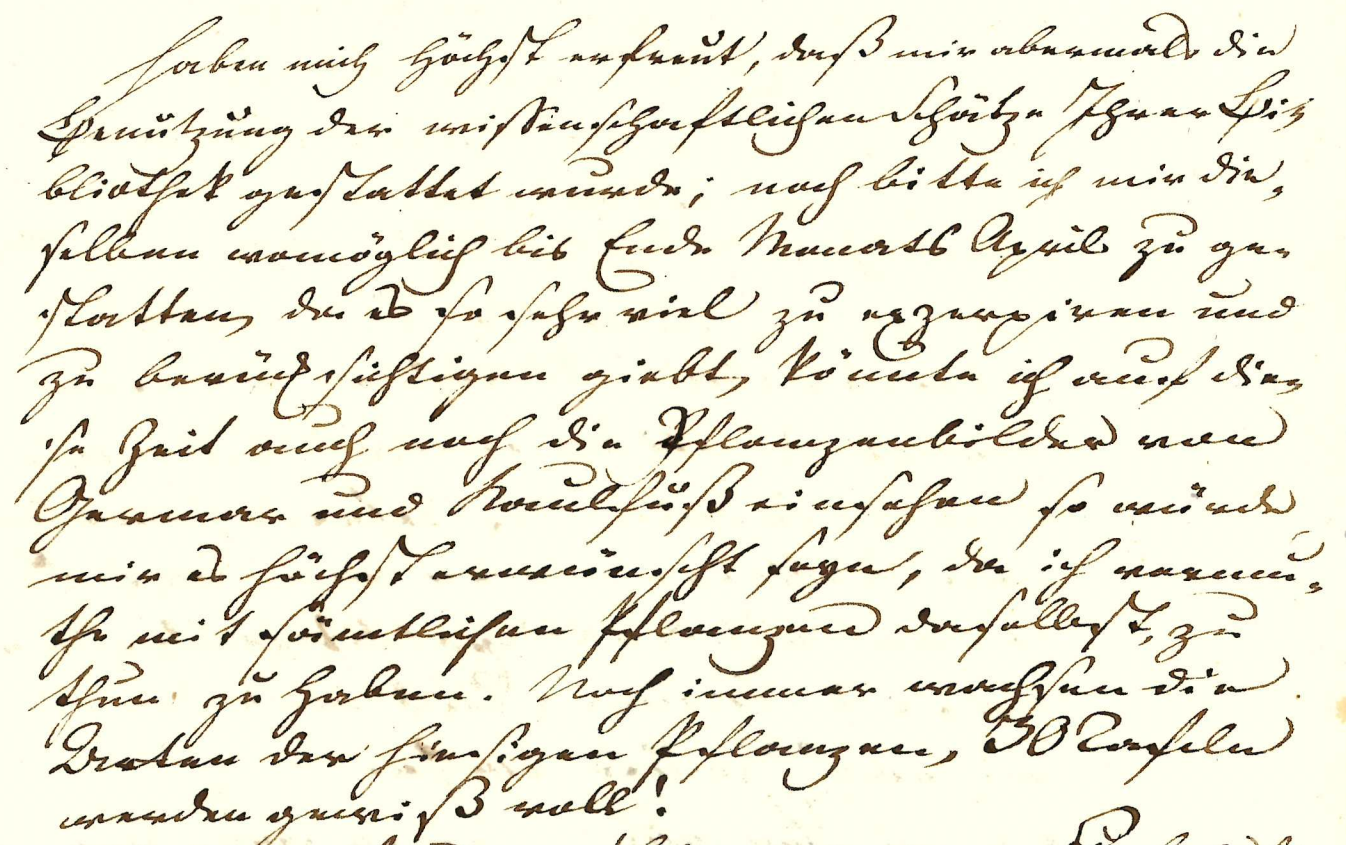 haben mich höchst erfreut, daß mir abermals die
Benützung der wissenschaftlichen Schätze Ihrer Bi-
bliothek gestattet wurde; noch bitte ich mir die-
selben womöglich bis Ende Monats April zu ge-
statten, da es so sehr viel zu exzerpiren und
zu berücksichtigen giebt, könnte ich auf die-
se Zeit auch noch die Pflanzenbilder von
Germar und Kaulfuß einsehen so würde
mir es höchst erwünscht seyn, da ich vermu-
the mit sämtlichen Pflanzen daselbst, zu
thun zu haben. Noch immer wachsen die
Arten der hiesigen Pflanzen, 30 Tafeln
werden gewiß voll!